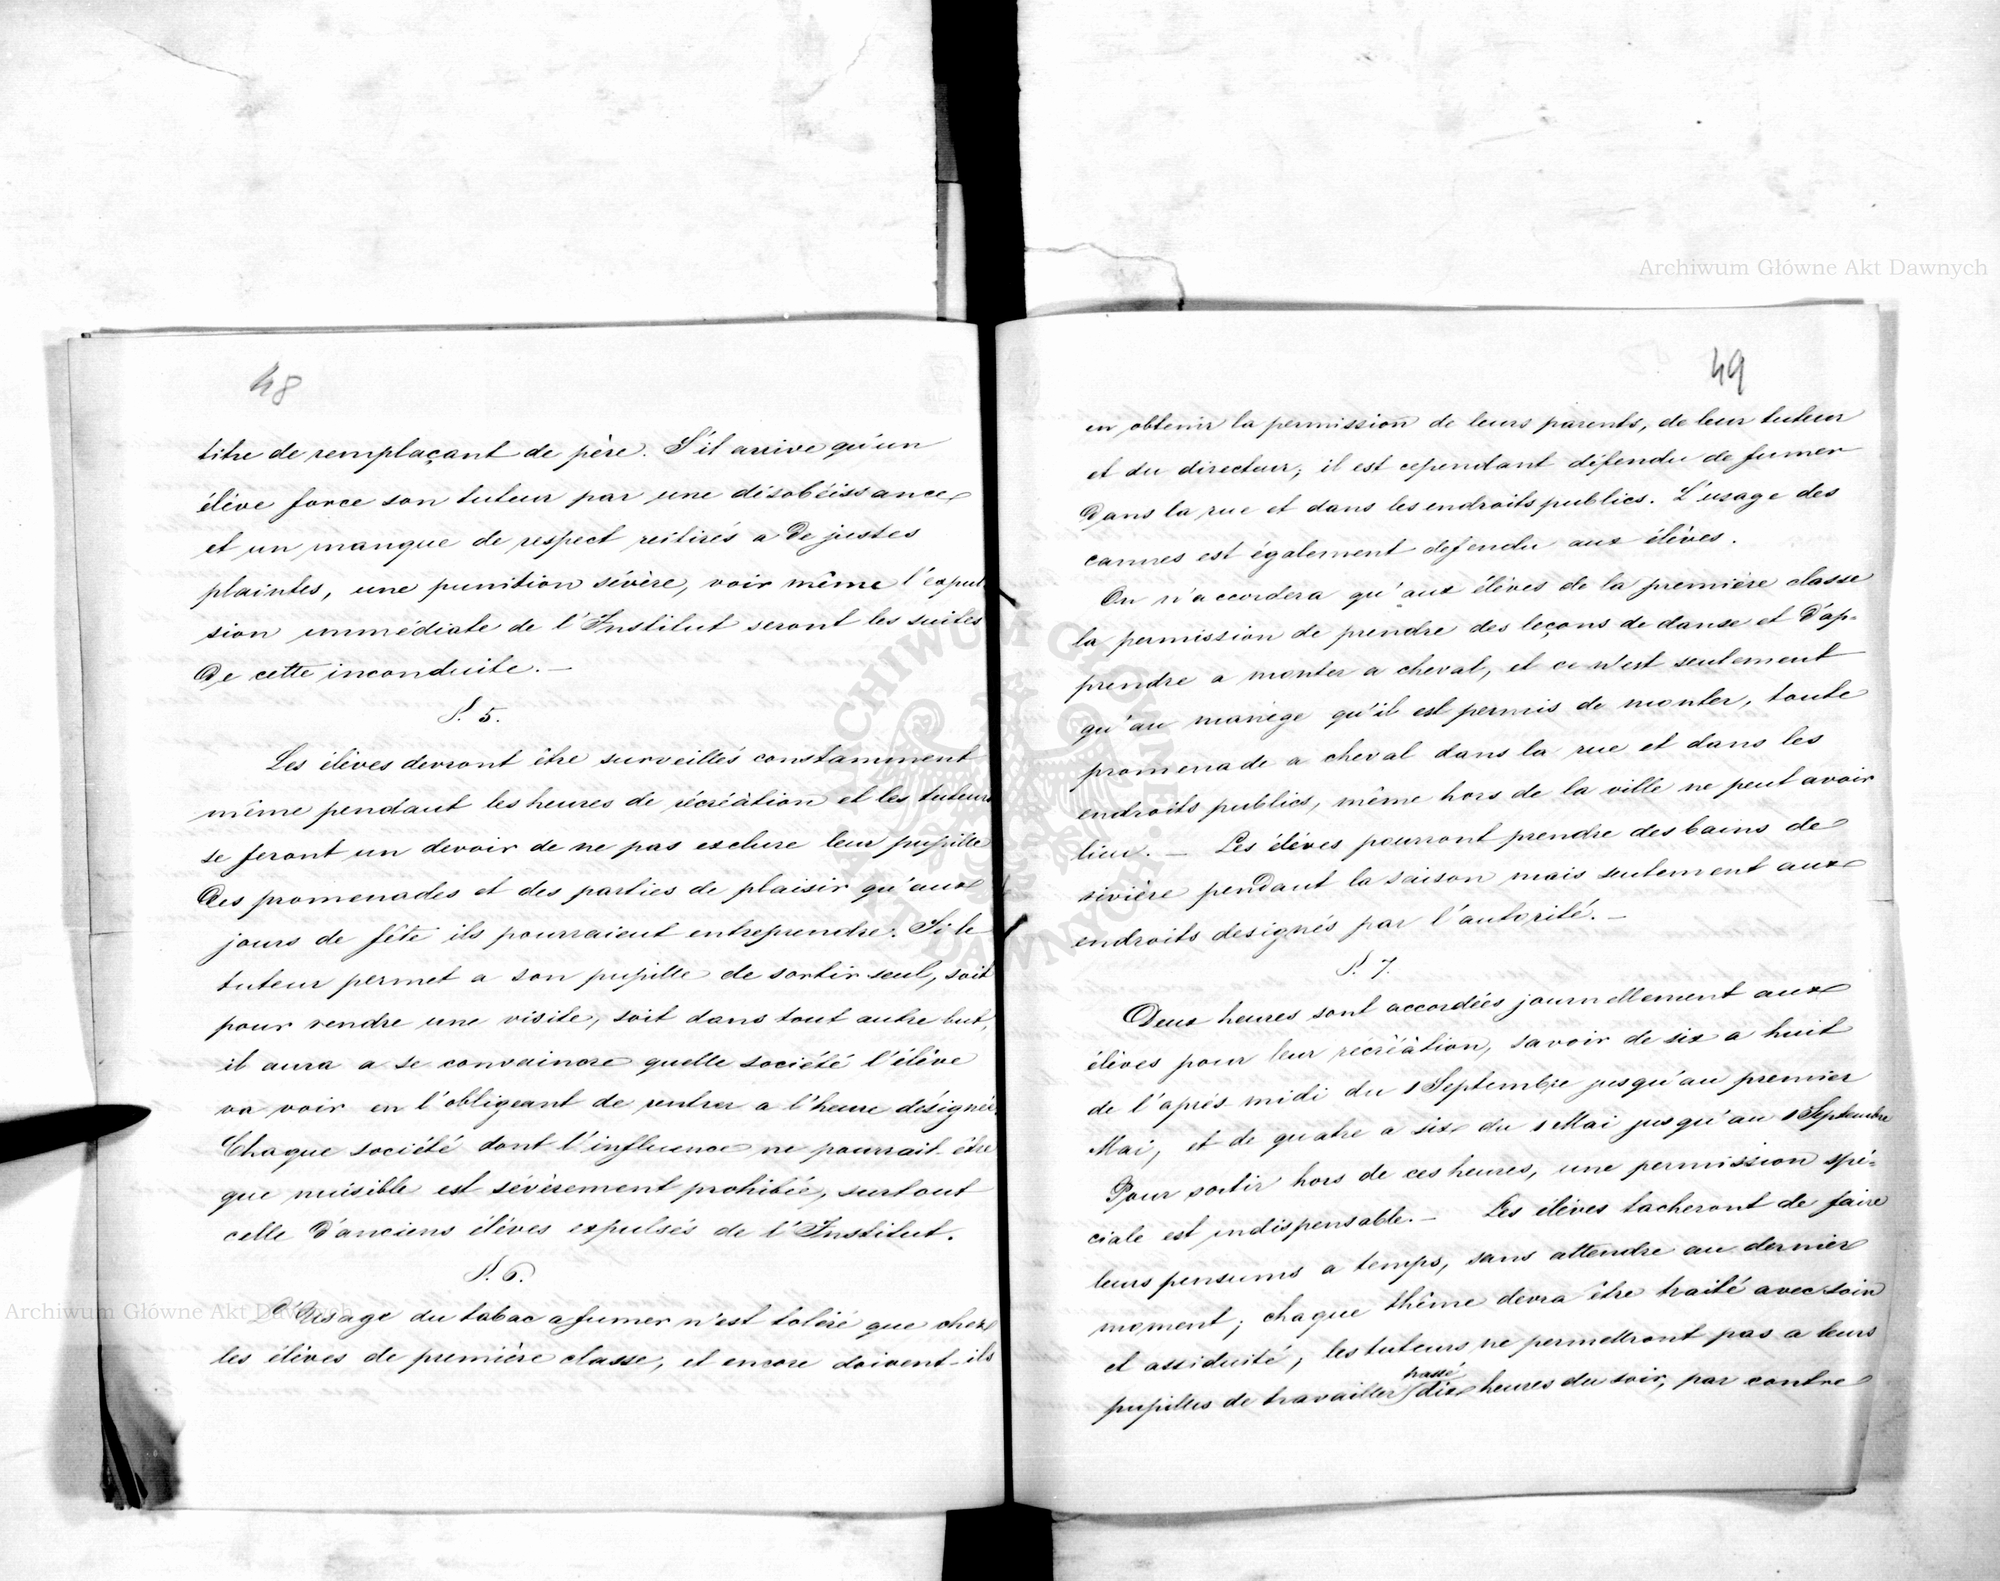 Archiwum Główne Akt Dawnych
48
titre de remplaçant de père. S'il arrive qu'un
élève force son tuteur par une désobéissance
et un manque de respect reitirés a de justes
plaintes, une punition sévère, voir même l'expul
sion immédiate de l'Institut seront les suites
de cette inconduite. —
§. 5.
Les élèves devront être surveillés constamment
même pendant les heures de récréation et les tuteurs
se feront un devoir de ne pas exclure leur pupille
des promenades et des parties de plaisir qu'aux
jours de fête ils pourraient entreprendre. Si le
tuteur permet a son pupille de sortir seul, soit
pour rendre une visite, soit dans tout autre but,
il aura a se convaincre quelle société l'élève
va voir en l'obligeant de rentrer a l'heure désignée
Chaque société dont l'influence ne pourrait être
que nuisible est sévèrement prohibée, surtout
celle d'anciens élèves expulsés de l'Institut.
§. 6.
L'Usage du tabac a fumer n'est toléré que chez
les élèves de première classe, et encore doivent-ils
Archiwum Główne Akt Dawnych
49
en obtenir la permission de leurs parents, de leur tuteur
et du directeur; il est cependant défendu de fumer
dans la rue et dans les endroits publics. L'usage des
cannes est également defendu aux élèves.
On n'accordera qu'aux élèves de la première classe
la permission de prendre des leçons de danse et d'ap-
prendre a monter a cheval, et ce n'est seulement
qu'au manège qu'il est permis de monter, toute
promenade a cheval dans la rue et dans les
endroits publics, même hors de la ville ne peut avoir
lieu. — Les élèves pourront prendre des bains de
rivière pendant la saison mais seulement aux
endroits designés par l'autorité. —
§. 7.
Deux heures sont accordées journellement aux
élèves pour leur recréation, savoir de six a huit
de l'après midi du 1 Septembre jusqu'au premier
Mai, et de quatre a six du 1 Mai jusqu'au 1 Septembre
Pour sortir hors de ces heures, une permission spé-
ciale est indispensable. — Les élèves tacheront de faire
leurs pensums a temps, sans attendre au dernier
moment; chaque thême devra être traité avec soin
et assiduité, les tuteurs ne permettront pas a leurs
passé
pupilles de travailler dix heures du soir, par contre
ARCHIWUM GŁÓWNE AKT DAWNYCH